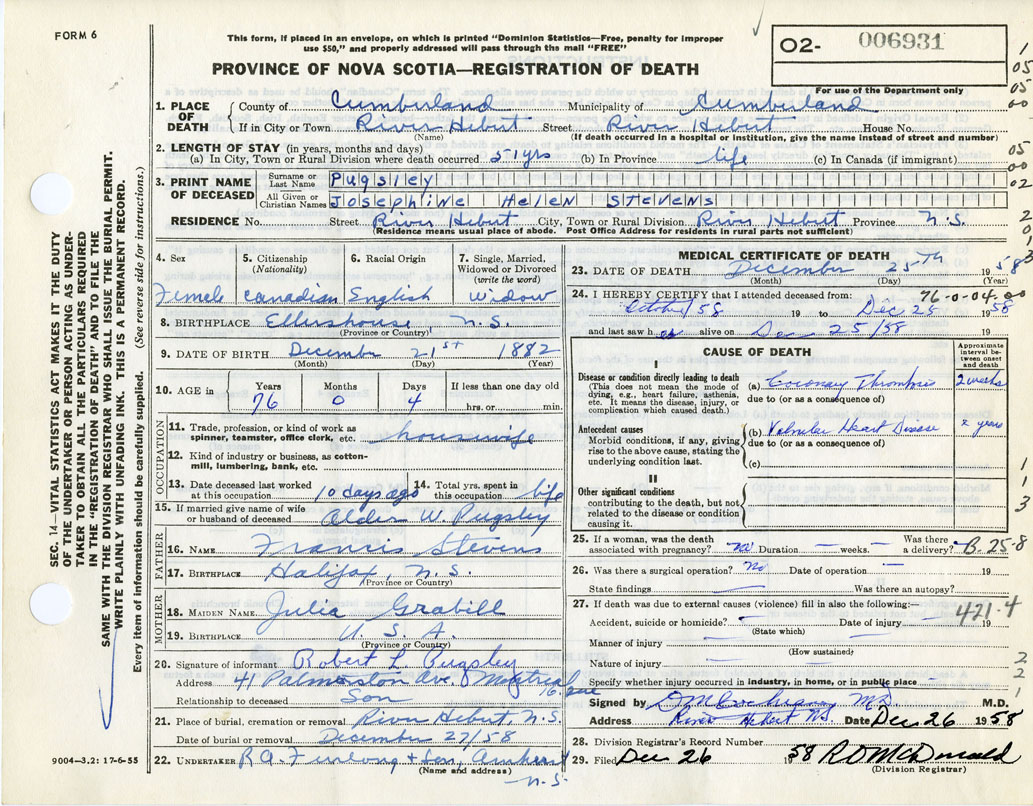 FORM 6
This form, if placed in an envelope, on which is printed "Dominion Statistics—Free, penalty for improper
use $50," and properly addressed will pass through the mail "FREE"
PROVINCE OF NOVA SCOTIA—REGISTRATION OF DEATH
O2- 006931
For use of the Department only
1. PLACE OF DEATH
County of Cumberland Municipality of Cumberland
If in City or Town River Hebert Street River Hebert House No.
(Name) (If death occurred in a hospital or institution, give the name instead of street and number)
2. LENGTH OF STAY (in years, months and days)
(a) In City, Town or Rural Division where death occurred 51 yrs (b) In Province life (c) In Canada (if immigrant)
3. PRINT NAME OF DECEASED
Surname or Last Name Pugsley
All Given or Christian Names JOSEPHINE HELEN STEVENS
RESIDENCE No. Street River Hebert City, Town or Rural Division River Hebert Province N.S.
(Residence means usual place of abode. Post Office Address for residents in rural parts not sufficient)
4. Sex
Female
5. Citizenship
(Nationality)
Canadian
6. Racial Origin
English
7. Single, Married,
Widowed or Divorced
(write the word)
Widow
8. BIRTHPLACE Ellershouse N.S.
(Province or Country)
9. DATE OF BIRTH December 21st 1882
(Month) (Day) (Year)
10. AGE in Years Months Days If less than one day old
76 0 4 hrs. or min.
OCCUPATION
11. Trade, profession or kind of work as
spinner, teamster, office clerk, etc. housewife
12. Kind of industry or business, as cotton-
mill, lumbering, bank, etc.
13. Date deceased last worked
at this occupation 10 days ago
14. Total yrs. spent in
this occupation life
15. If married give name of wife
or husband of deceased Alder W. Pugsley
FATHER
16. NAME Francis Stevens
17. BIRTHPLACE Halifax, N.S.
(Province or Country)
MOTHER
18. MAIDEN NAME Julia Grabill
19. BIRTHPLACE U.S.A.
(Province or Country)
20. Signature of informant Robert L. Pugsley
Address 41 Palmerston Ave. Montreal 16. Que
Relationship to deceased Son
21. Place of burial, cremation or removal River Hebert, N.S.
Date of burial or removal December 27/58
22. UNDERTAKER R.A. Furlong + Son, Amherst
(Name and address) N.S.
MEDICAL CERTIFICATE OF DEATH
23. DATE OF DEATH December 25th 1958
(Month) (Day) (Year)
24. I HEREBY CERTIFY that I attended deceased from: 76-0-04.00
October/58 19 to Dec 25 1958
and last saw h er alive on Dec 25/58 19
CAUSE OF DEATH
Approximate interval between onset and death
I
Disease or condition directly leading to death
(This does not mean the mode of
dying, e.g., heart failure, asthenia,
etc. It means the disease, injury, or
complication which caused death.)
(a) Coronary Thrombosis 2 weeks
due to (or as a consequence of)
Antecedent causes
Morbid conditions, if any, giving
rise to the above cause, stating the
underlying condition last.
(b) Valvular Heart Disease x years
due to (or as a consequence of)
(c)
II
Other significant conditions
contributing to the death, but not
related to the disease or condition
causing it.
25. If a woman, was the death
associated with pregnancy? No Duration — weeks. — Was there a delivery? B. 25-8
26. Was there a surgical operation? No Date of operation — 19
State findings Was there an autopsy?
27. If death was due to external causes (violence) fill in also the following:— 421-4
Accident, suicide or homicide? — Date of injury — 19
(State which)
Manner of injury —
(How sustained)
Nature of injury —
Specify whether injury occurred in industry, in home, or in public place —
Signed by D M Cochrane M.D. M.D.
Address River Hebert N.S. Date Dec 26 1958
28. Division Registrar's Record Number
29. Filed Dec 26 1958 R D McDonald
(Division Registrar)
SEC. 14—VITAL STATISTICS ACT MAKES IT THE DUTY
OF THE UNDERTAKER OR PERSON ACTING AS UNDER-
TAKER TO OBTAIN ALL THE PARTICULARS REQUIRED
IN THE "REGISTRATION OF DEATH" AND TO FILE THE
SAME WITH THE DIVISION REGISTRAR WHO SHALL ISSUE THE BURIAL PERMIT.
WRITE PLAINLY WITH UNFADING INK. THIS IS A PERMANENT RECORD.
Every item of information should be carefully supplied. (See reverse side for instructions.)
9004—3.2: 17-6-55
1
05
00
05
00
02
2
0
1
3
1
1
3
2
2
1